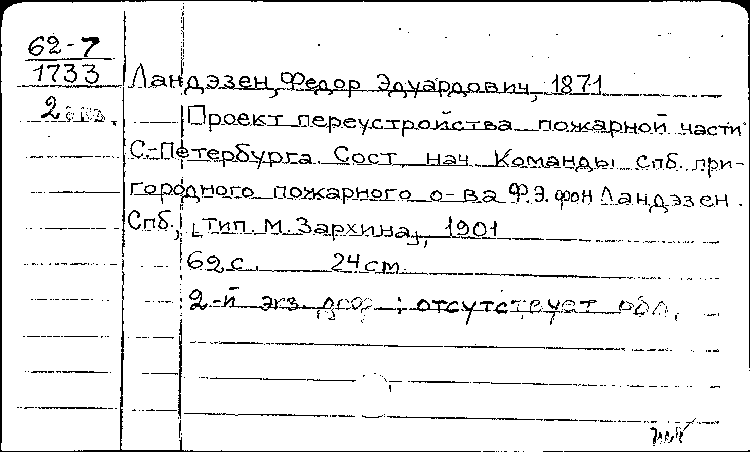 62-7
1733
2 экз.
Ландэзен, Федор Эдуардович, 1871
Проект переустройства пожарной части
С-Петербурга. Сост. нач. Команды Спб. при-
городного пожарного о-ва Ф.Э. фон Ландэзен.
Спб., [тип. М. Зархина], 1901
62 с. 24 cm.
2-й экз. деф.: отсутствует обл.